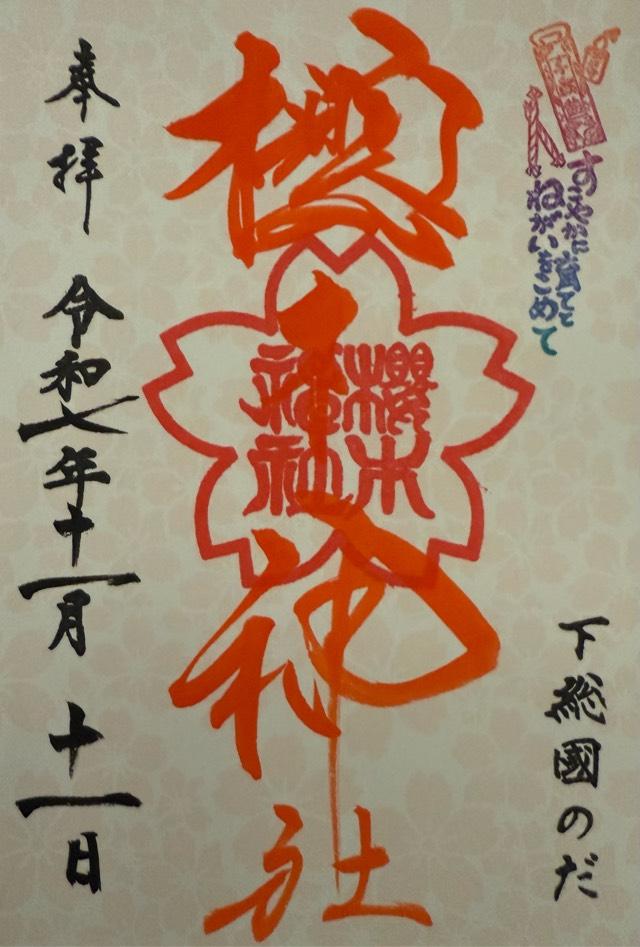 すこやかに育てと
ねがいをこめて
下総國のだ
櫻木神社
櫻木
神社
奉拝 令和七年十一月十一日